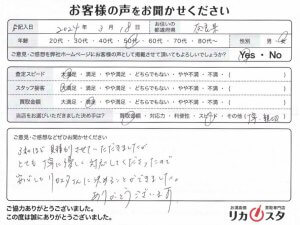 お客様の声をお聞かせください
ご記入日 2024年 3月 18日 お住いの都道府県 奈良県
年齢 20代・30代・40代・50代・60代・70代 性別 男・女
ご意見・ご感想を弊社ホームページにお客様の声として掲載させて頂いてもよろしいでしょうか? Yes・No
査定スピード 大満足・満足・やや満足・どちらでもない・やや不満・不満 ( )
スタッフ接客 大満足・満足・やや満足・どちらでもない・やや不満・不満 ( )
買取金額 大満足・満足・やや満足・どちらでもない・やや不満・不満 ( )
当店をお選びいただきました決め手は? 買取金額・対応力・利便性・スピード・その他 (
ご意見・ご感想などぜひお聞かせください
3社ほど見積りさせていただきましたが
とても丁寧に優しく対応してくださったので
安心しリカスタさんに決めることができました。
ありがとうございます
ご協力ありがとうございました。
この度は誠にありがとうございました。
お酒高価買取専門店
リカスタ